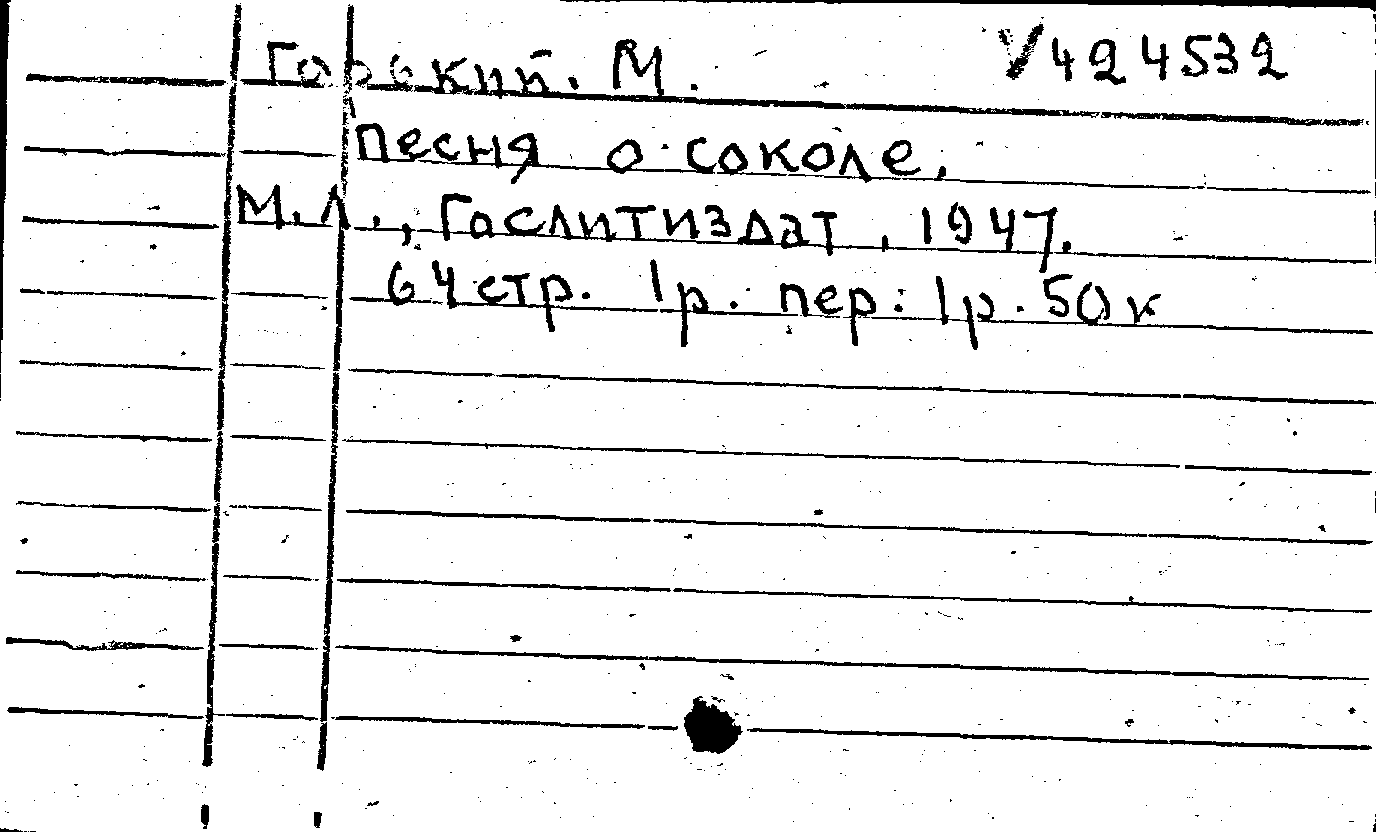 Горький. М. V424532
песня о соколе.
М.Л., Гослитиздат, 1947.
64 стр. 1р. пер: 1р. 50к